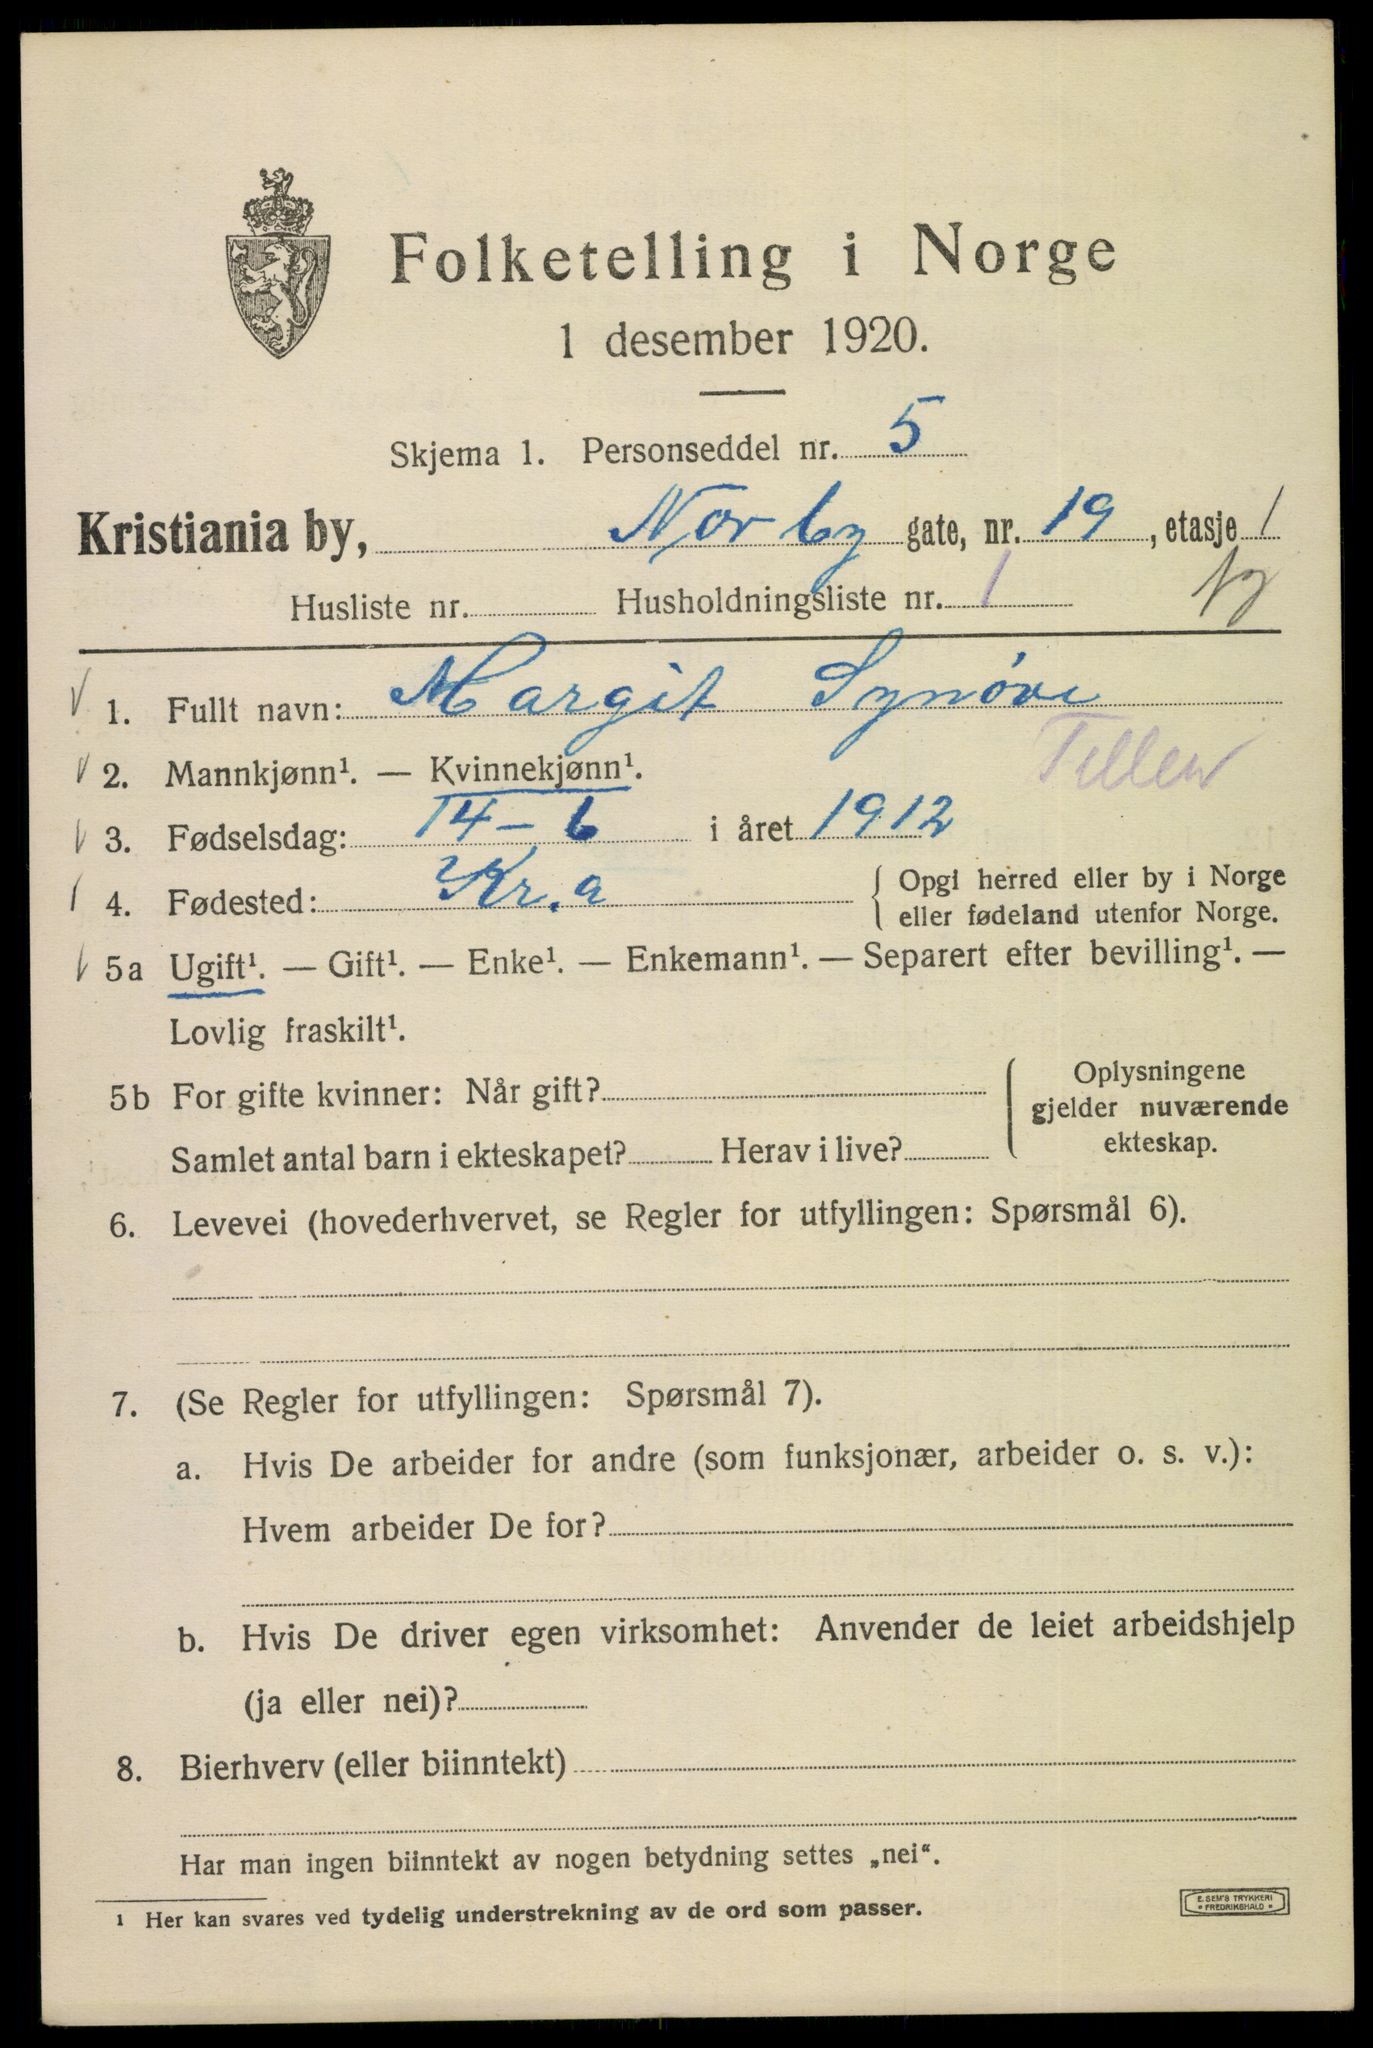 Folketelling i Norge
1 desember 1920.
Skjema 1. Personseddel nr. 5
Kristiania by, Norby gate, nr. 19, etasje 1
Husliste nr. Husholdningsliste nr. 1
1. Fullt navn: Margit Synøve
Tellew
2. Mannkjønn¹. — Kvinnekjønn¹.
3. Fødselsdag: 14-6 i året 1912
4. Fødested: Kr.a { Opgi herred eller by i Norge
eller fødeland utenfor Norge.
5a Ugift¹. — Gift¹. — Enke¹. — Enkemann¹. — Separert efter bevilling¹. —
Lovlig fraskilt¹.
5b For gifte kvinner: Når gift?
Samlet antal barn i ekteskapet? Herav i live?
Oplysningene
gjelder nuværende
ekteskap.
6. Levevei (hovederhvervet, se Regler for utfyllingen: Spørsmål 6).
7. (Se Regler for utfyllingen: Spørsmål 7).
a. Hvis De arbeider for andre (som funksjonær, arbeider o. s. v.):
Hvem arbeider De for?
b. Hvis De driver egen virksomhet: Anvender de leiet arbeidshjelp
(ja eller nei)?
8. Bierhverv (eller biinntekt)
Har man ingen biinntekt av nogen betydning settes „nei“.
1 Her kan svares ved tydelig understrekning av de ord som passer.
E. SEM'S TRYKKERI
FREDRIKSHALD